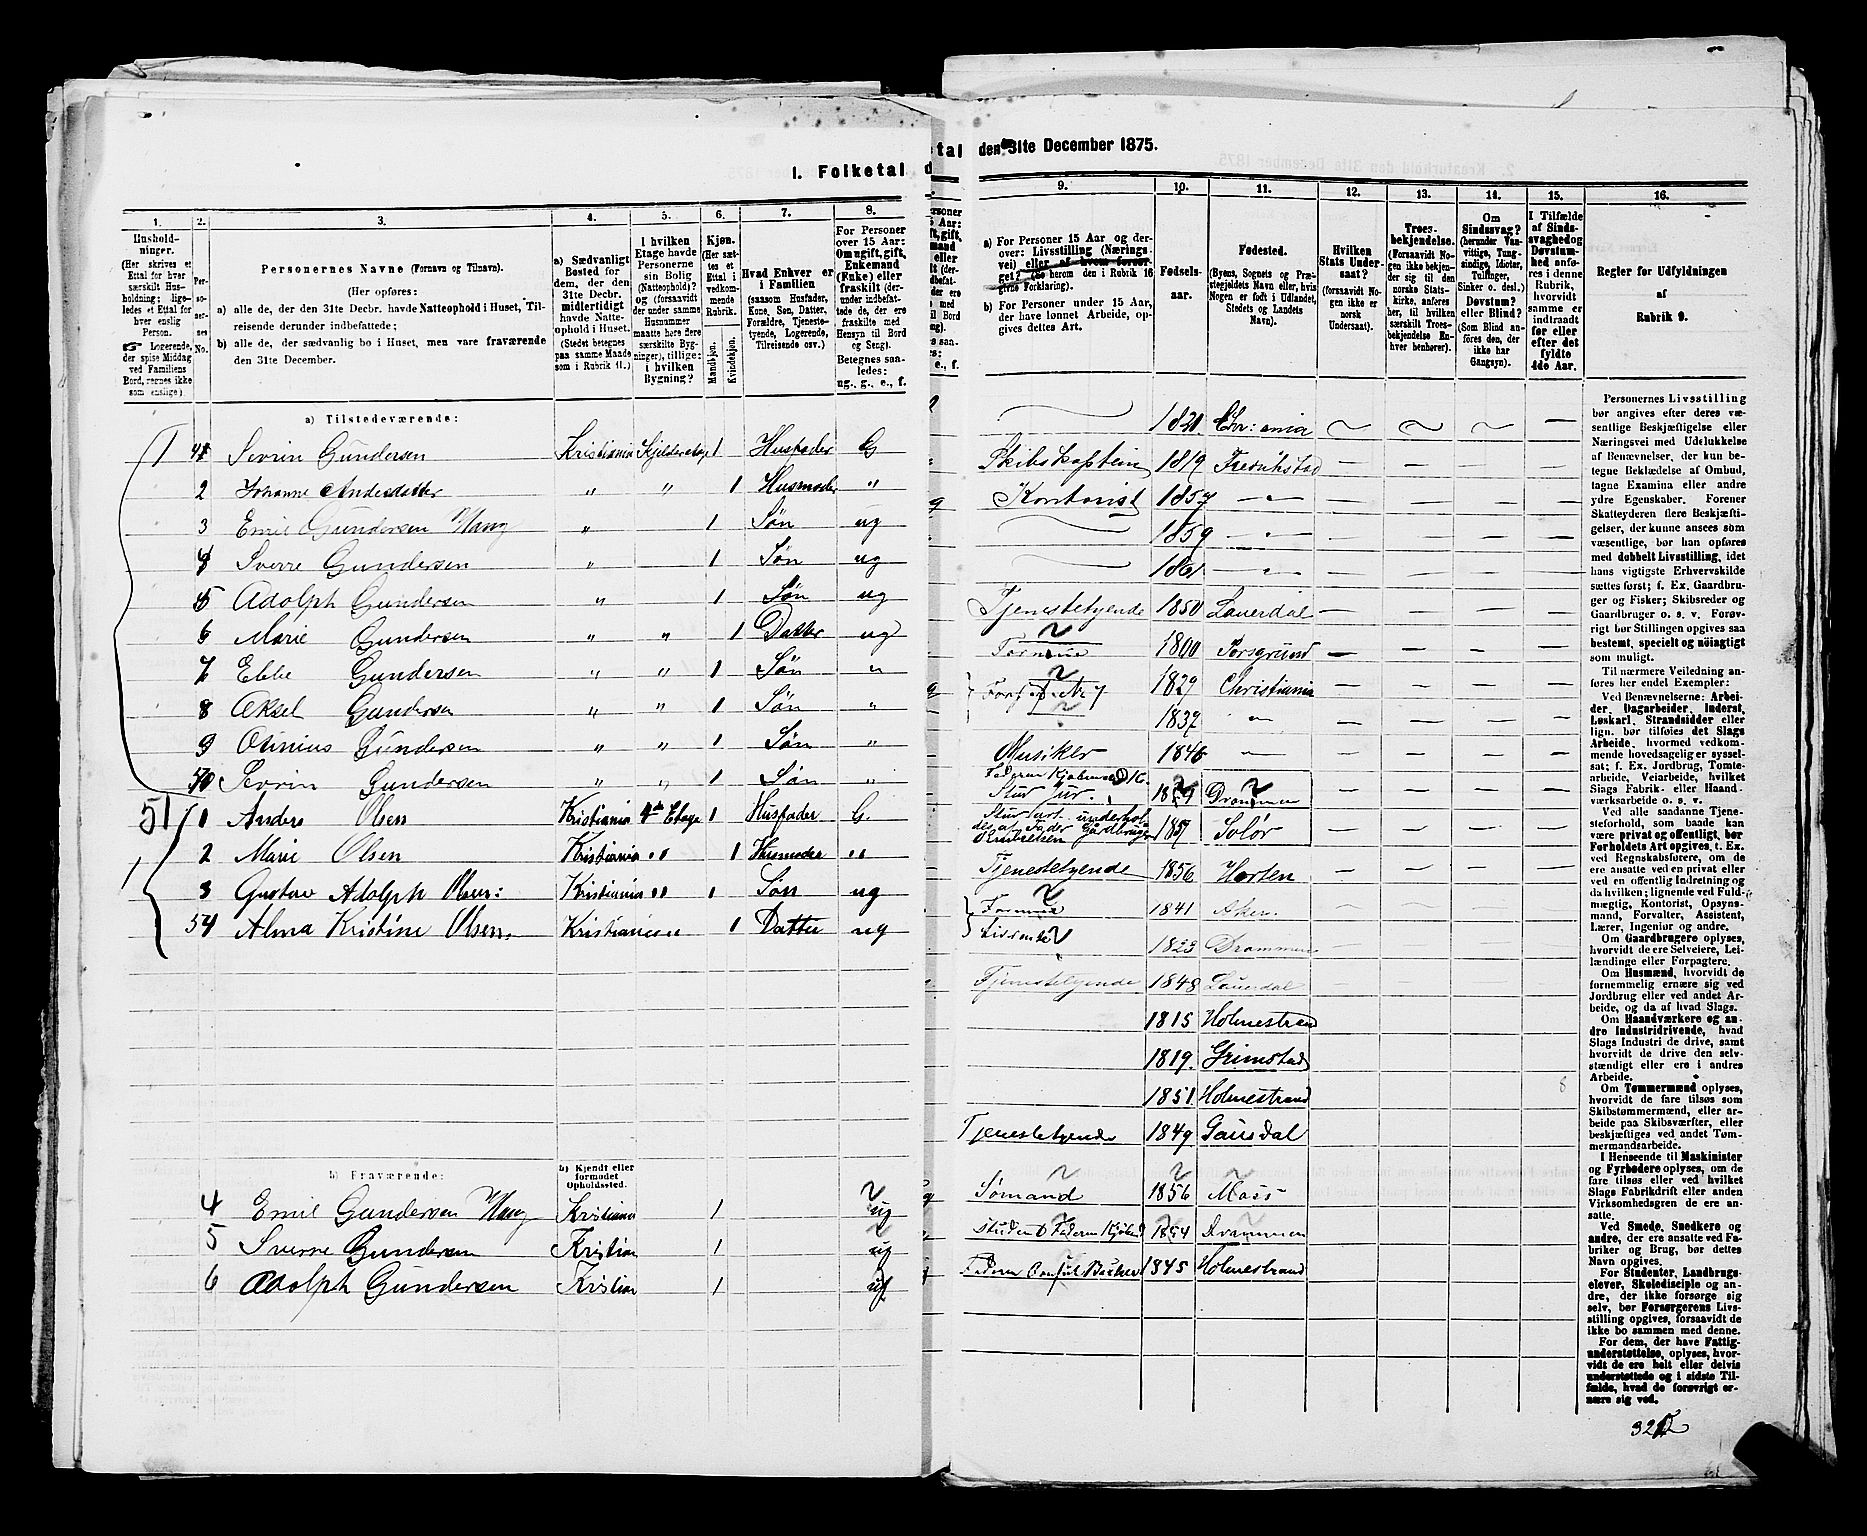 1. Folketal
tal den 31te December 1875.
1.
2.
3.
4.
5.
6.
7.
8.
Hushold-
ninger.
(Her skrives et
Ettal for hver
særskilt Hus-
holdning; lige-
ledes et Ettal for
hver enslig
Person.
☞ Logerende,
der spise Middag
ved Familiens
Bord, regnes ikke
som enslige.)
Per-
so-
ner-
nes
No.
Personernes Navne (Fornavn og Tilnavn).
(Her opføres:
a) alle de, der den 31te Decbr. havde Natteophold i Huset, Til-
reisende derunder indbefattede;
b) alle de, der sædvanlig bo i Huset, men vare fraværende
den 31te December.
a) Sædvanligt
Bosted for
dem, der den
31te Decbr.
midlertidigt
havde Natte-
ophold i Huset.
(Stedet betegnes
paa samme Maade
som i Rubrik 11.)
I hvilken
Etage havde
Personerne
sin Bolig
(Natteophold)?
og (forsaavidt
der under samme
Husnummer
maatte høre flere
særskilte Byg-
ninger), tillige:
i hvilken
Bygning?
Kjøn.
(Her sæt-
tes et
Ettal i
vedkom-
mende
Rubrik.
Mandkjøn.
Kvindekjøn.
Hvad Enhver er
i Familien
(saasom Husfader,
Kone, Søn, Datter,
Forældre, Tjeneste-
tyende, Logerende,
Tilreisende osv.)
For Personer
over 15 Aar:
Om ugift, gift,
Enkemand
(Enke) eller
fraskilt (der-
under indbefat-
tede de, der ere
fraskilte med
Hensyn til Bord
og Seng).
Betegnes saa-
ledes:
ug., g., e., f.
a) Tilstedeværende:
1 41 Sevrin Gundersen Kristiania Kjelderetage 1 Husfader G
2 Johanne Andersdatter " " 1 Husmoder "
3 Emil Gundersen Haug " 1 Søn ug
4 Sverre Gundersen " 1 Søn ug
5 Adolph Gundersen " 1 Søn ug
6 Marie Gundersen " " 1 Datter ug
7 Ebbe Gundersen " " 1 Søn "
8 Aksel Gundersen " " 1 Søn "
9 Otinius Gundersen " " 1 Søn "
50 Sevrin Gundersen " " 1 Søn "
51 1 Anders Olsen Kristiania 4de Etage 1 Husfader G.
2 Marie Olsen Kristiania " 1 Husmoder "
3 Gustav Adolph Olsen: Kristiania " 1 Søn ug
54 Alma Kristine Olsen. Kristiania " 1 Datter ug
b) Fraværende:
b) Kjendt eller
formodet
Opholdssted.
4 Emil Gundersen Haug Kristiania 1 ug
5 Sverre Gundersen Kristian 1 ug
6 Adolph Gundersen Kristian 1 ug
9.
10.
11.
12.
13.
14.
15.
16.
a) For Personer 15 Aar og der-
over: Livsstilling (Nærings-
vei) eller af hvem forsør-
get? (Se herom den i Rubrik 16
givne Forklaring).
b) For Personer under 15 Aar,
der have lønnet Arbeide, op-
gives dettes Art.
Fødsels-
aar.
Fødested.
(Byens, Sognets og Præ-
stegjeldets Navn eller, hvis
Nogen er født i Udlandet,
Stedets og Landets
Navn).
Hvilken
Stats Under-
saat?
(forsaavidt No-
gen ikke er
norsk
Undersaat).
Troes-
bekjendelse.
(Forsaavidt No-
gen ikke bekjen-
der sig til den
norske Stats-
kirke, anføres
her, til hvilken
særskilt Troes-
bekjendelse En-
hver henhører).
Om
Sindssvag?
(herunder Van-
vittige, Tung-
sindige, Idioter,
Tullinger,
Sinker o. desl.)
Døvstum?
eller Blind?
(Som Blind an-
føres den, der
ikke har
Gangsyn).
I Tilfælde
af Sinds-
svaghed og
Døvstum-
hed anfø-
res i denne
Rubrik,
hvorvidt
samme er
indtraadt
før eller
efter det
fyldte
4de Aar.
Regler for Udfyldningen
af
Rubrik 9.
1821. Chr: ania
Skibskaptein 1819 Fredrikstad
Kontorist 1857 — " —
1859 — " —
1861 — " —
Tjenestetyende 1850 Laurdal
1800 Porsgrund
1829 Christiania
1837 "
Musiker 1846 "
Stud Jur. 1859 Drammen
1857 Solør
Tjenestetyende 1856 Horten
1841 Aker.
1823 Drammen
Tjenestetyende 1848 Laurdal
1815 Holmestrand
1819. Grimstad
1851 Holmestrand
Tjenestetyende 1849 Gausdal
Sømand 1856 Moss
1854 Drammen
1845 Holmestrand
Personernes Livsstilling
bør angives efter deres væ-
sentlige Beskjæftigelse eller
Næringsvei med Udelukkelse
af Benævnelser, der kun be-
tegne Beklædelse af Ombud,
tagne Examina eller andre
ydre Egenskaber. Forener
Skatteyderen flere Beskjæfti-
gelser, der kunne ansees som
væsentlige, bør han opføres
med dobbelt Livsstilling, idet
hans vigtigste Erhvervskilde
sættes først; f. Ex. Gaardbru-
ger og Fisker; Skibsreder og
Gaardbruger o. s. v. Forøv-
rigt bør Stillingen opgives saa
bestemt, specielt og nøiagtigt
som muligt.
Til nærmere Veiledning an-
føres her endel Exempler:
Ved Benævnelserne: Arbei-
der, Dagarbeider, Inderst,
Løskarl, Strandsidder eller
lign. bør tilføies det Slags
Arbeide, hvormed vedkom-
mende hovedsagelig er syssel-
sat; f. Ex. Jordbrug, Tomte-
arbeide, Veiarbeide, hvilket
Slags Fabrik- eller Haand-
værksarbeide o. s. v.
Ved alle saadanne Tjene-
steforhold, som baade kan
være privat og offentligt, bør
Forholdets Art opgives, t. Ex.
ved Regnskabsførere, om de
ere ansatte ved en privat eller
ved en offentlig Indretning og
da hvilken; lignende ved Fuld-
mægtig, Kontorist, Opsyns-
mand, Forvalter, Assistent,
Lærer, Ingeniør og andre.
Om Gaardbrugere oplyses,
hvorvidt de ere Selveiere, Lei-
lændinge eller Forpagtere.
Om Husmænd, hvorvidt de
fornemmelig ernære sig ved
Jordbrug eller ved andet Ar-
beide, og da af hvad Slags.
Om Haandværkere og an-
dre Industridrivende, hvad
Slags Industri de drive, samt
hvorvidt de drive den selv-
stændigt eller ere i andres
Arbeide.
Om Tømmermænd oplyses,
hvorvidt de fare tilsøs som
Skibstømmermænd, eller ar-
beide paa Skibsværfter, eller
beskjæftiges ved andet Tøm-
mermandsarbeide.
I Henseende til Maskinister
og Fyrbødere oplyses, om de
fare tilsøs eller ved hvilket
Slags Fabrikdrift eller anden
Virksomhedsgren de ere an-
satte.
Ved Smede, Snedkere og
andre, der ere ansatte ved Fa-
briker og Brug, bør dettes
Navn opgives.
For Studenter, Landbrugs-
elever, Skoledisciple og an-
dre, der ikke forsørge sig
selv, bør Forsørgerens Livs-
stilling opgives, forsaavidt de
ikke bo sammen med denne.
For dem, der have Fattig-
understøttelse, oplyses, hvor-
vidt de ere helt eller delvis
understøttede og i sidste Til-
fælde, hvad de forøvrigt er-
nære sig ved.